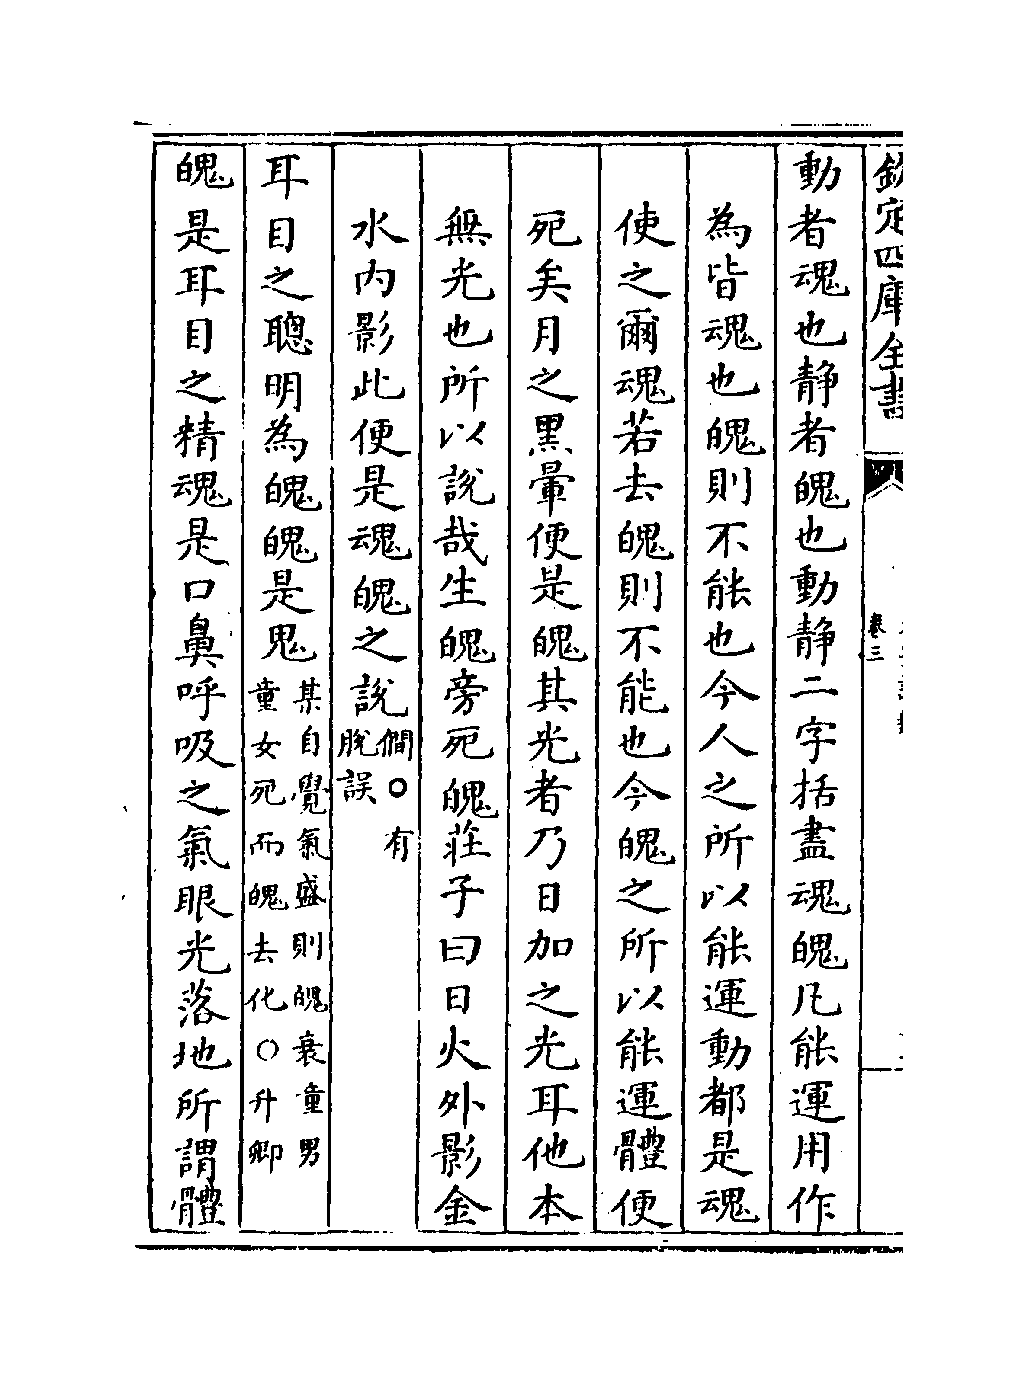 欽定四庫全書
卷三
動者魂也静者魄也動静二字括盡魂魄凡能運用作
為皆魂也魄則不能也今人之所以能運動都是魂
使之爾魂若去魄則不能也今魄之所以能運體便
死矣月之黑暈便是魄其光者乃日加之光耳他本
無光也所以說哉生魄旁死魄莊子曰日火外影金
水内影此便是魂魄之說僩○有
脫誤
耳目之聰明為魄魄是鬼某自覺氣盛則魄衰童男
童女死而魄去化○升卿
魄是耳目之精魂是口鼻呼吸之氣眼光落地所謂體